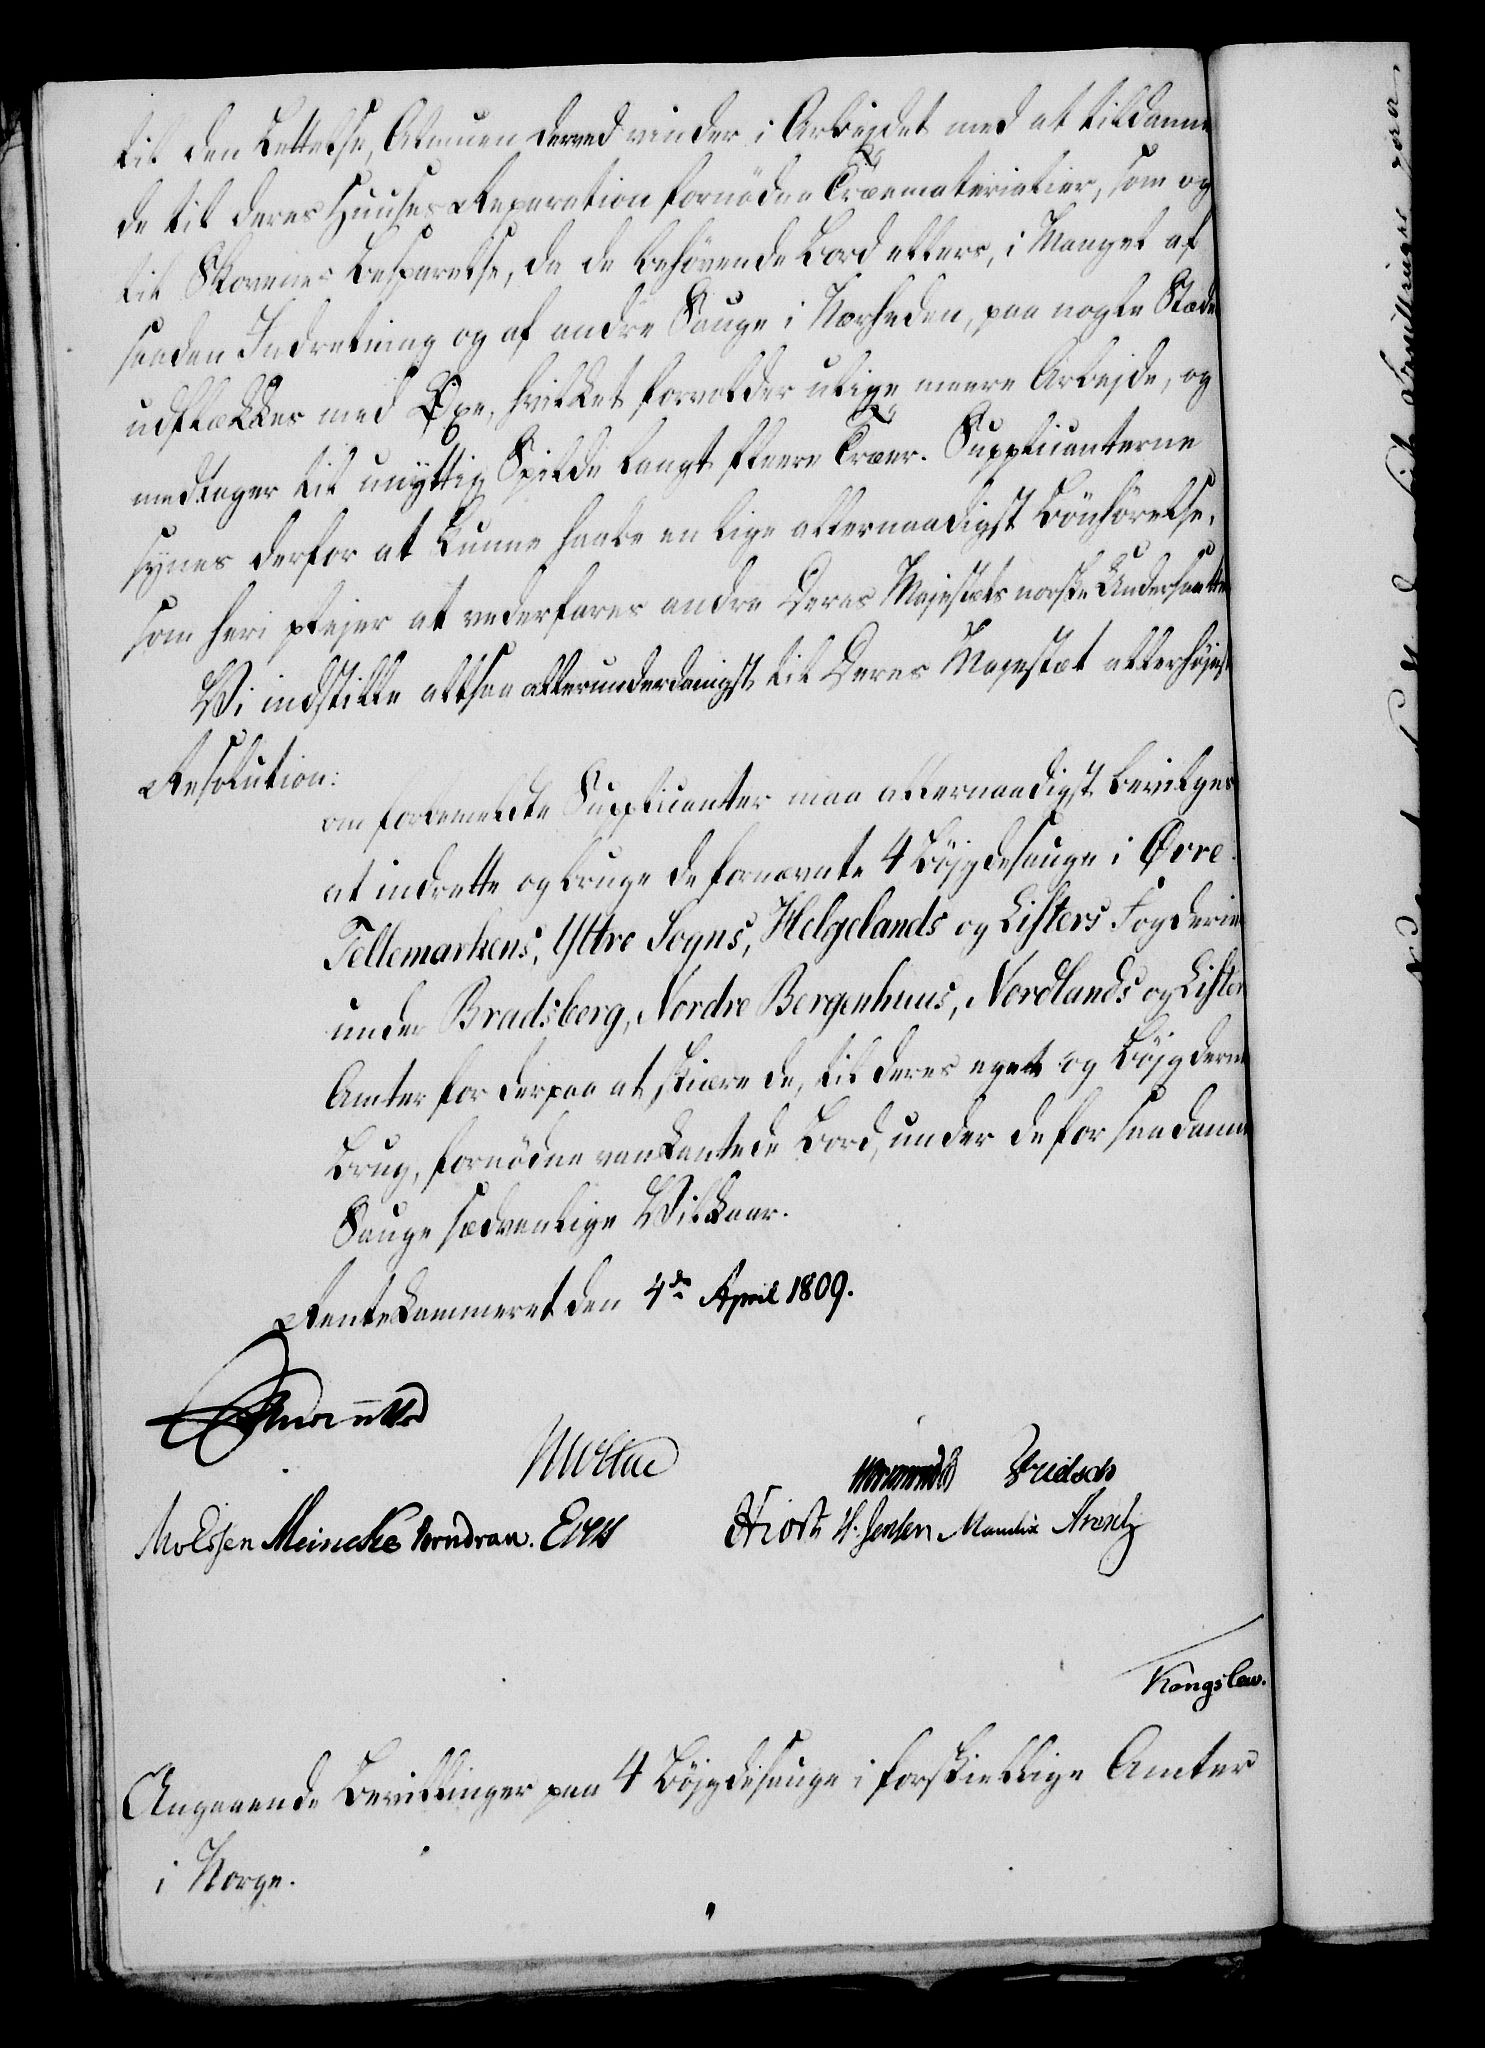 til den Lettelse, Almuen derved vinder i Arbejdet med at tildanne
de til deres Huuses Reparation fornødne Træematerialier, som og
til Skovenes Besparelse, da de behøvende Bord ellers, i Mangel af
saadan Indretning og af andre Sauge i Nærheden, paa nogle Stæder
udflækkes med Øxe, hvilket forvolder ulige meere Arbejde, og
medtager til unyttig Spilde langt fleere Træer. Supplicanterne
synes derfor at kunne haabe en lige allernaadigst Bønhørelse,
som heri plejer at vederfares andre Deres Majestæts norske Undersaatter
Vi indstille altsaa allerunderdanigst til Deres Majestæt allerhøjeste
Resolution:
om forbemeldte Supplicanter maa allernaadigst bevilges
at indrette og bruge de fornævnte 4 Bøjgdesauge i Øvre
Tellemarkens, Yttre Sogns, Helgelands og Listers Fogderier
under Bradsberg, Nordre Bergenhuus, Nordlands og Lister
Amter for derpaa at skiære de, til deres eget og Bøjgdernes
Brug, fornødne vankantede Bord, under de for saadanne
Sauge sædvanlige Vilkaar.
Rentekammeret den 4de April 1809.
Moltke
Wormskiold Fridsch
Meincke Vorndran. Eves
Hiorth H. Jensen Mandix Arentz
Kongslew.
Angaaende Bevillinger paa 4 Bøjgdesauge i forskiellige Amter
i Norge.